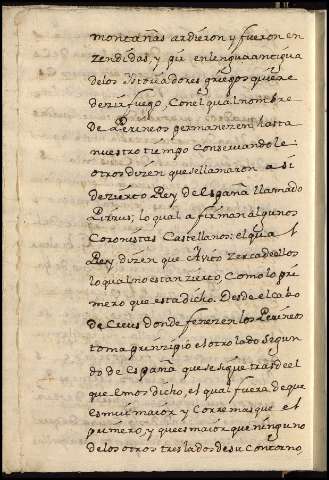 montañas ardieron y fueron en
zendidas, y pir en lengua antigua
de los istoriadores griegos quiere
dezir fuego, Con el qual nombre
de Perineos permanezen hasta
nuestro tiempo Conseruandole:
otros dizen que se llamaron a si
de zierto Rey de España llamado
Pirrus; lo qual afirman algunos
Coronistas Castellanos: el qual
Rey dizen que viuio zerca dellos
lo qual no es tan zierto, Como lo pri
mero que esta dicho. Desde el cabo
de Creus donde fenezen los Perineos
toma prinzipio el otro lado Segun
do de España que se sigue tras del
que emos dicho, el qual fuera de que
es mui maior, y Corre mas que el
primero, y que es maior que ninguno
de los otros tres lados de su Contorno,